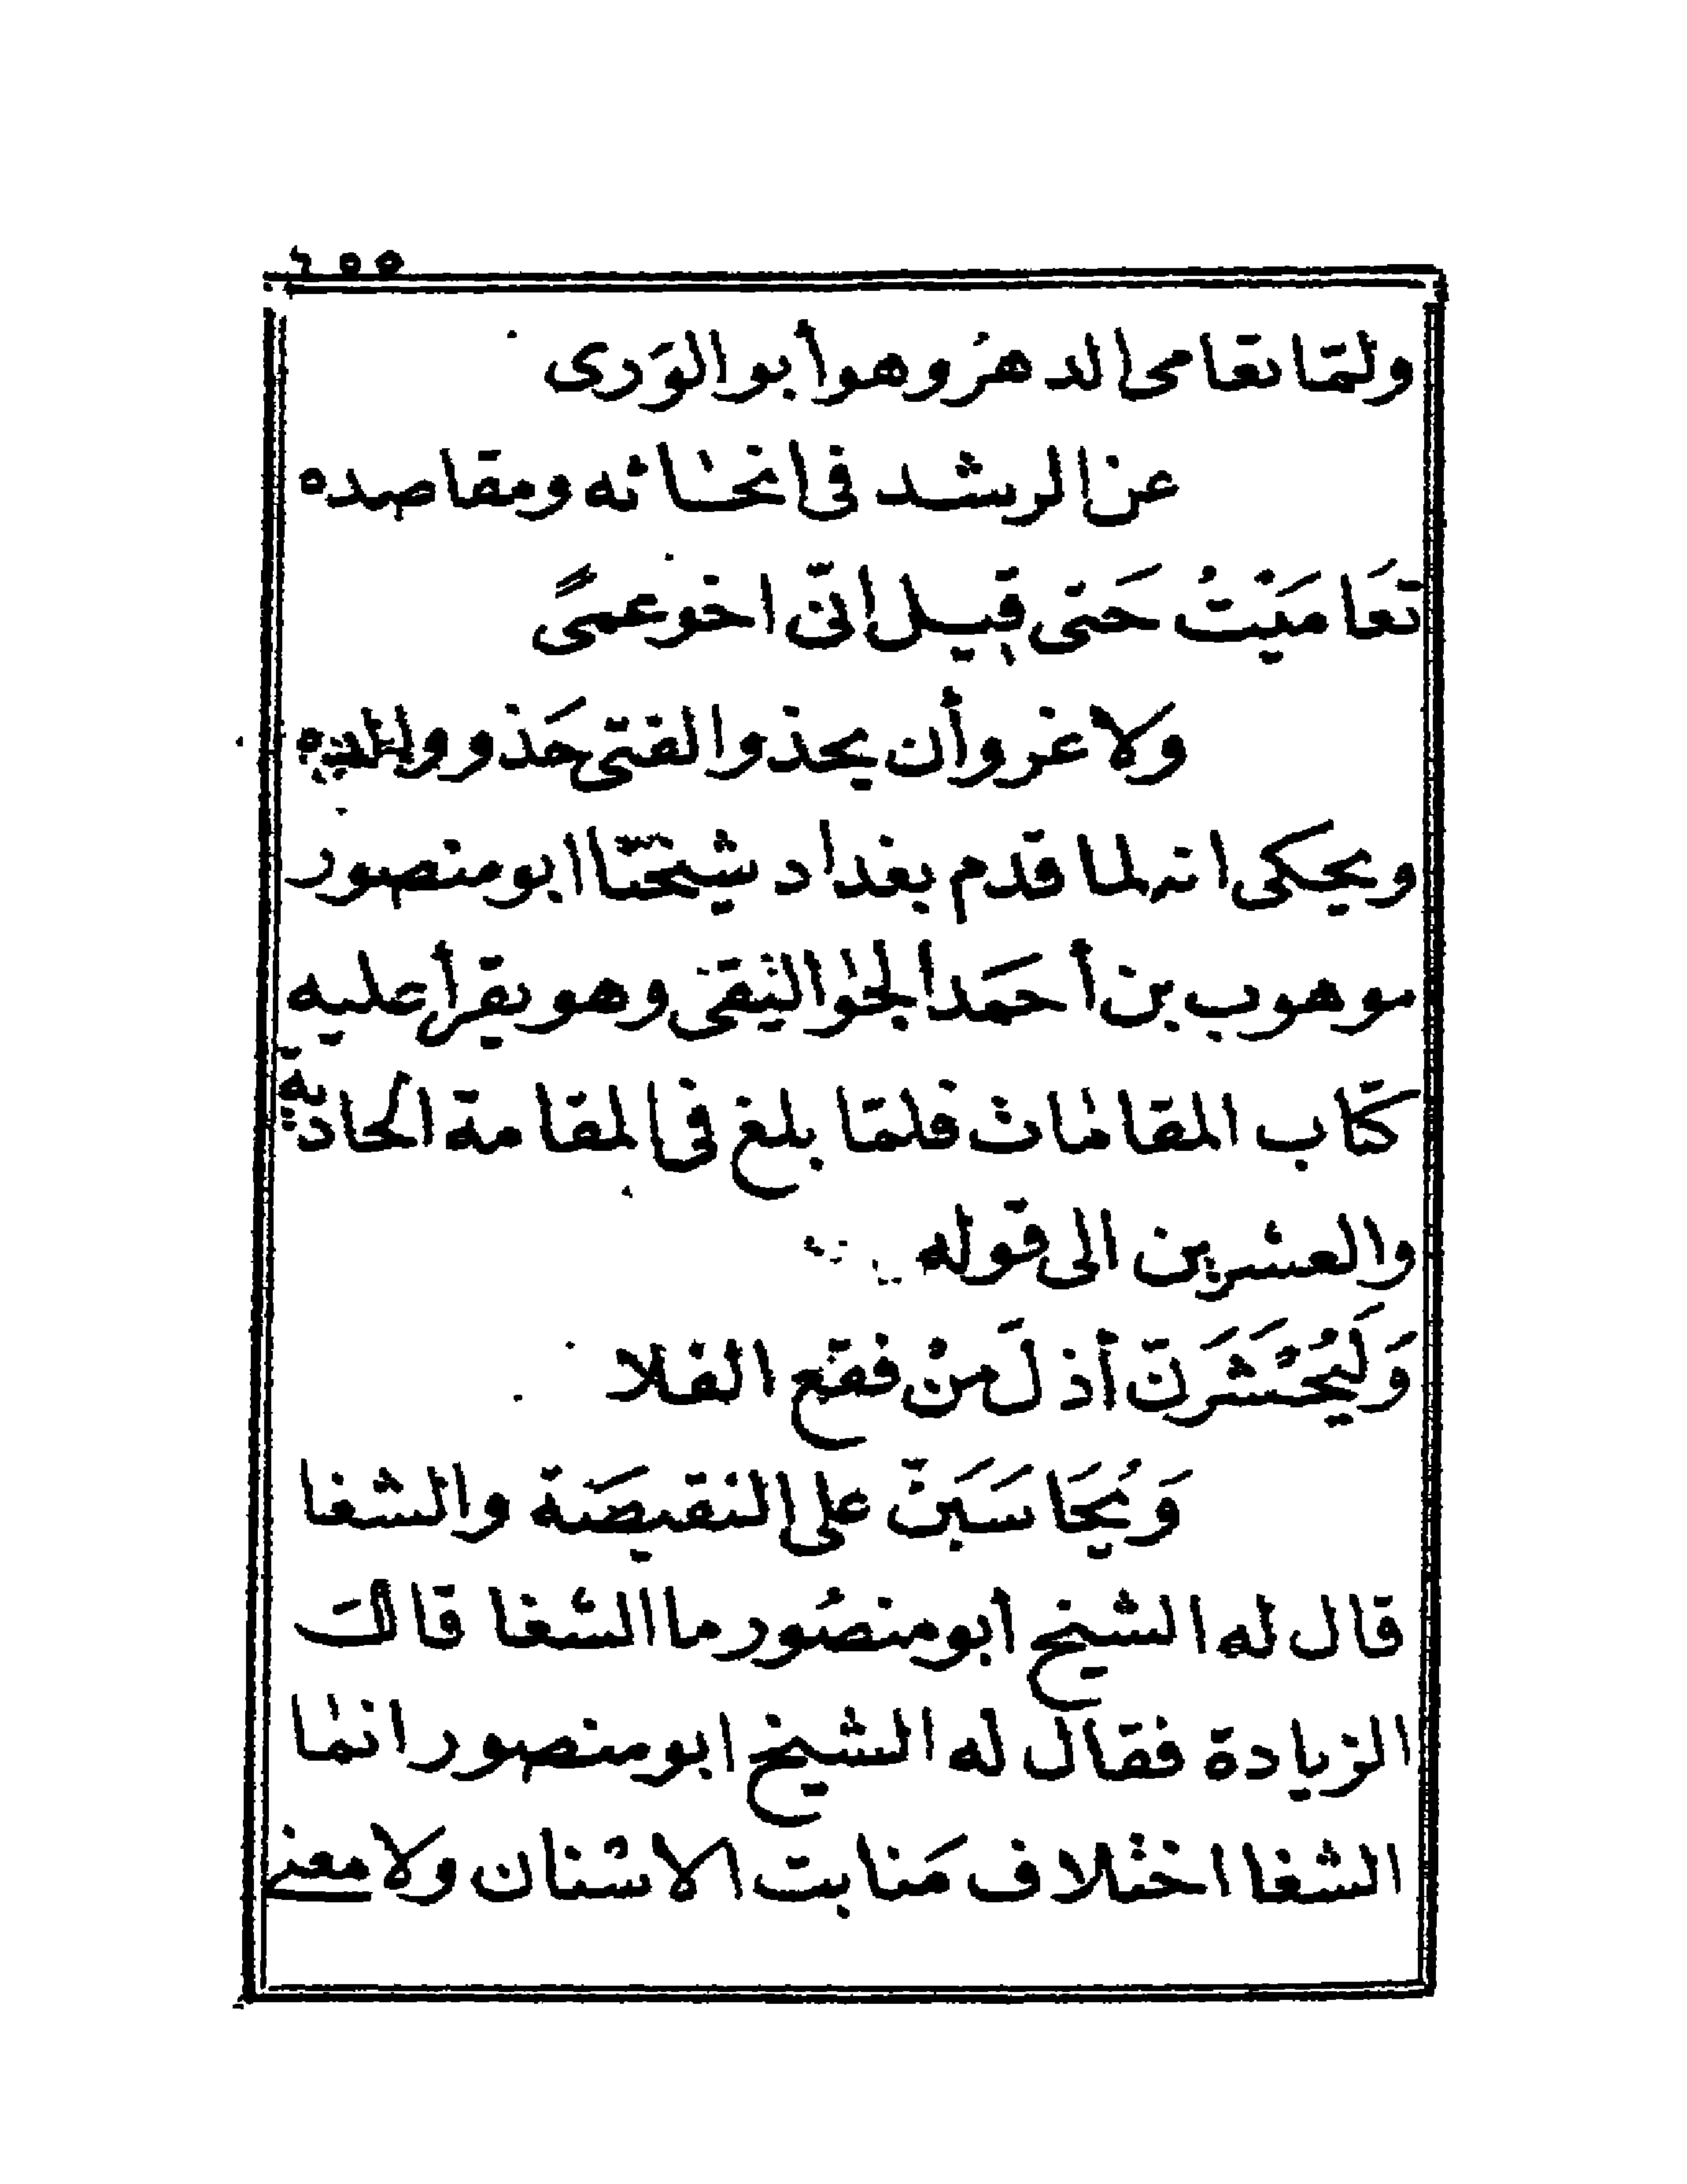 ٥٥٦
ولمّا تعامى الدهرُ وهو أبو الوَرى
عن الرشد فى انحائه ومقاصده
تعَاميْتُ حَتى قيل انّى اخو عمىً
ولا غرو أن يحذو الفتى حَذو والده
ويحكى انه لما قدم بغداد شيخنا ابو منصور
موهوب بن أحمَد الجواليقى وهو يقرأ عليه
كتاب المقامات فلمّا بلغ فى المقامة الحادية
والعشرين الى قوله
وَليُحْشَرَنّ أذلَ منْ فقع الفلا
وَيُحَاسَبَنّ على النقيصَة والشغا
قال له الشيخ أبو منصُور ما الشغا قالَ
الزيادة فقال له الشيخ ابو منصور انما
الشغا اختلاف مَنابت الاسنان ولا معنى